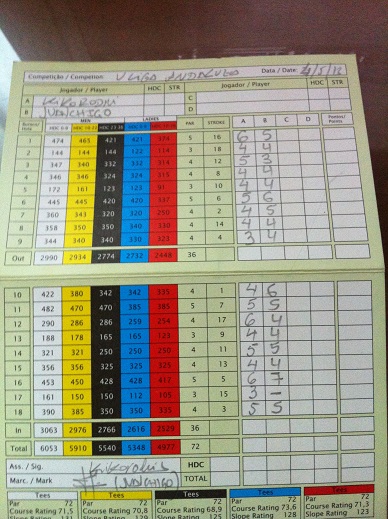 Competição / Competion: Data / Date: 4/5/12
Jogador / Player HDC STR Jogador / Player HDC STR
A C
B D
MEN LADIES
PAR STROKE A B C D Pontos/ Points
1 474 465 421 421 374 5 16 6 5
2 144 144 144 122 114 3 18 4 4
3 347 340 332 332 314 4 12 5 3
4 346 346 324 324 315 4 8 4 4
5 172 161 123 123 91 3 10 4 4
6 445 445 420 420 337 5 6 5 6
7 360 343 320 320 250 4 2 4 5
8 358 350 350 340 330 4 14 4 4
9 344 340 340 330 323 4 4 3 4
Out 2990 2934 2774 2732 2448 36
10 422 380 342 342 335 4 1 4 6
11 482 470 470 385 385 5 7 5 5
12 290 286 286 259 254 4 17 6 4
13 188 178 165 165 123 3 9 4 4
14 321 321 250 250 250 4 11 5 5
15 356 356 325 325 325 4 13 4 4
16 453 450 428 428 417 5 5 6 7
17 161 150 150 112 105 3 15 3 -
18 390 385 350 350 335 4 3 5 5
In 3063 2976 2766 2616 2529 36
Total 6053 5910 5540 5348 4977 72
Ass. / Sig. HDC
Marc. / Mark TOTAL
Tees Tees Tees Tees Tees
Par 72 Par 72 Par 72 Par 72 Par 72
Course Rating 71,5 Course Rating 70,8 Course Rating 68,9 Course Rating 73,6 Course Rating 71,1
Slope Rating 131 Slope Rating 129 Slope Rating 125 Slope Rating 128 Slope Rating 123